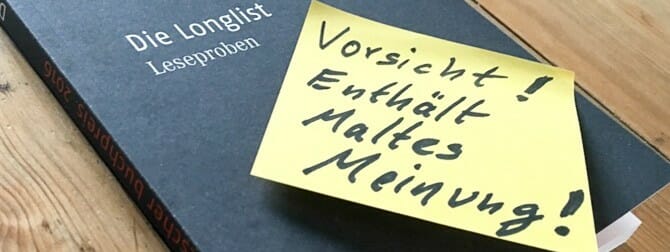 Die Longlist
Leseproben
Vorsicht!
Enthält
Maltes
Meinung!
scher buchpreis 2016